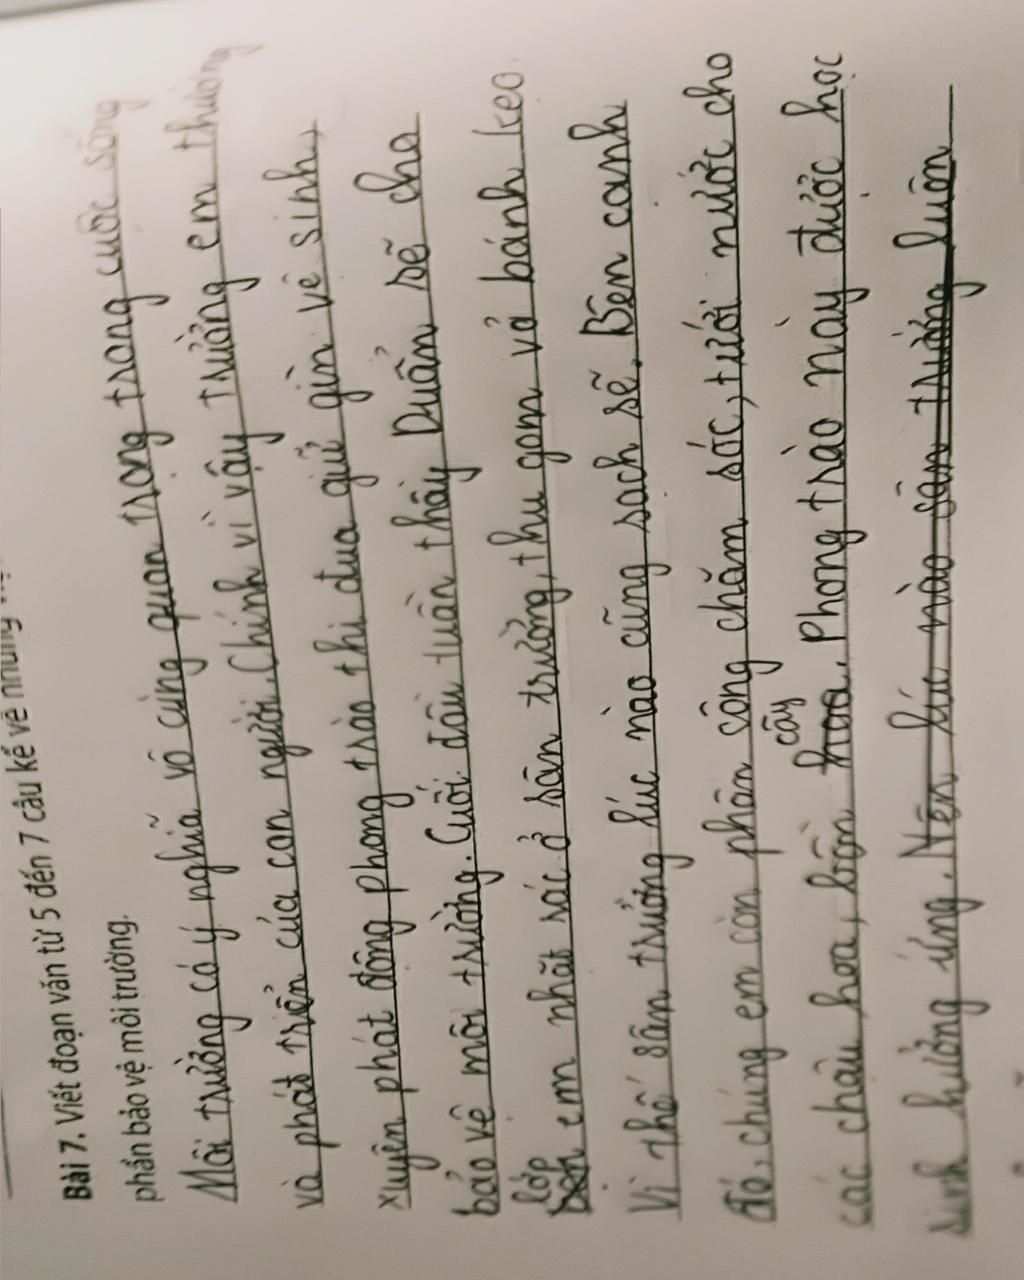 Bài 7. Viết đoạn văn từ 5 đến 7 câu kể về những
phần bảo vệ môi trường.
Môi trường có ý nghĩa vô cùng quan trọng trong cuộc sống
và phát triển của con người. Chính vì vậy trường em thường
xuyên phát động phong trào thi đua giữ gìn vệ sinh,
bảo vệ môi trường. Cuối đầu tuần thầy Duẩn sẽ cho
lớp em nhặt rác ở sân trường, thu gom vỏ bánh kẹo.
Vì thế sân trường lúc nào cũng sạch sẽ. Bên cạnh
đó, chúng em còn phân công chăm sóc, tưới nước cho
các chậu hoa, bồn cây. Phong trào này được học
sinh hưởng ứng. Nên lúc nào sân trường luôn